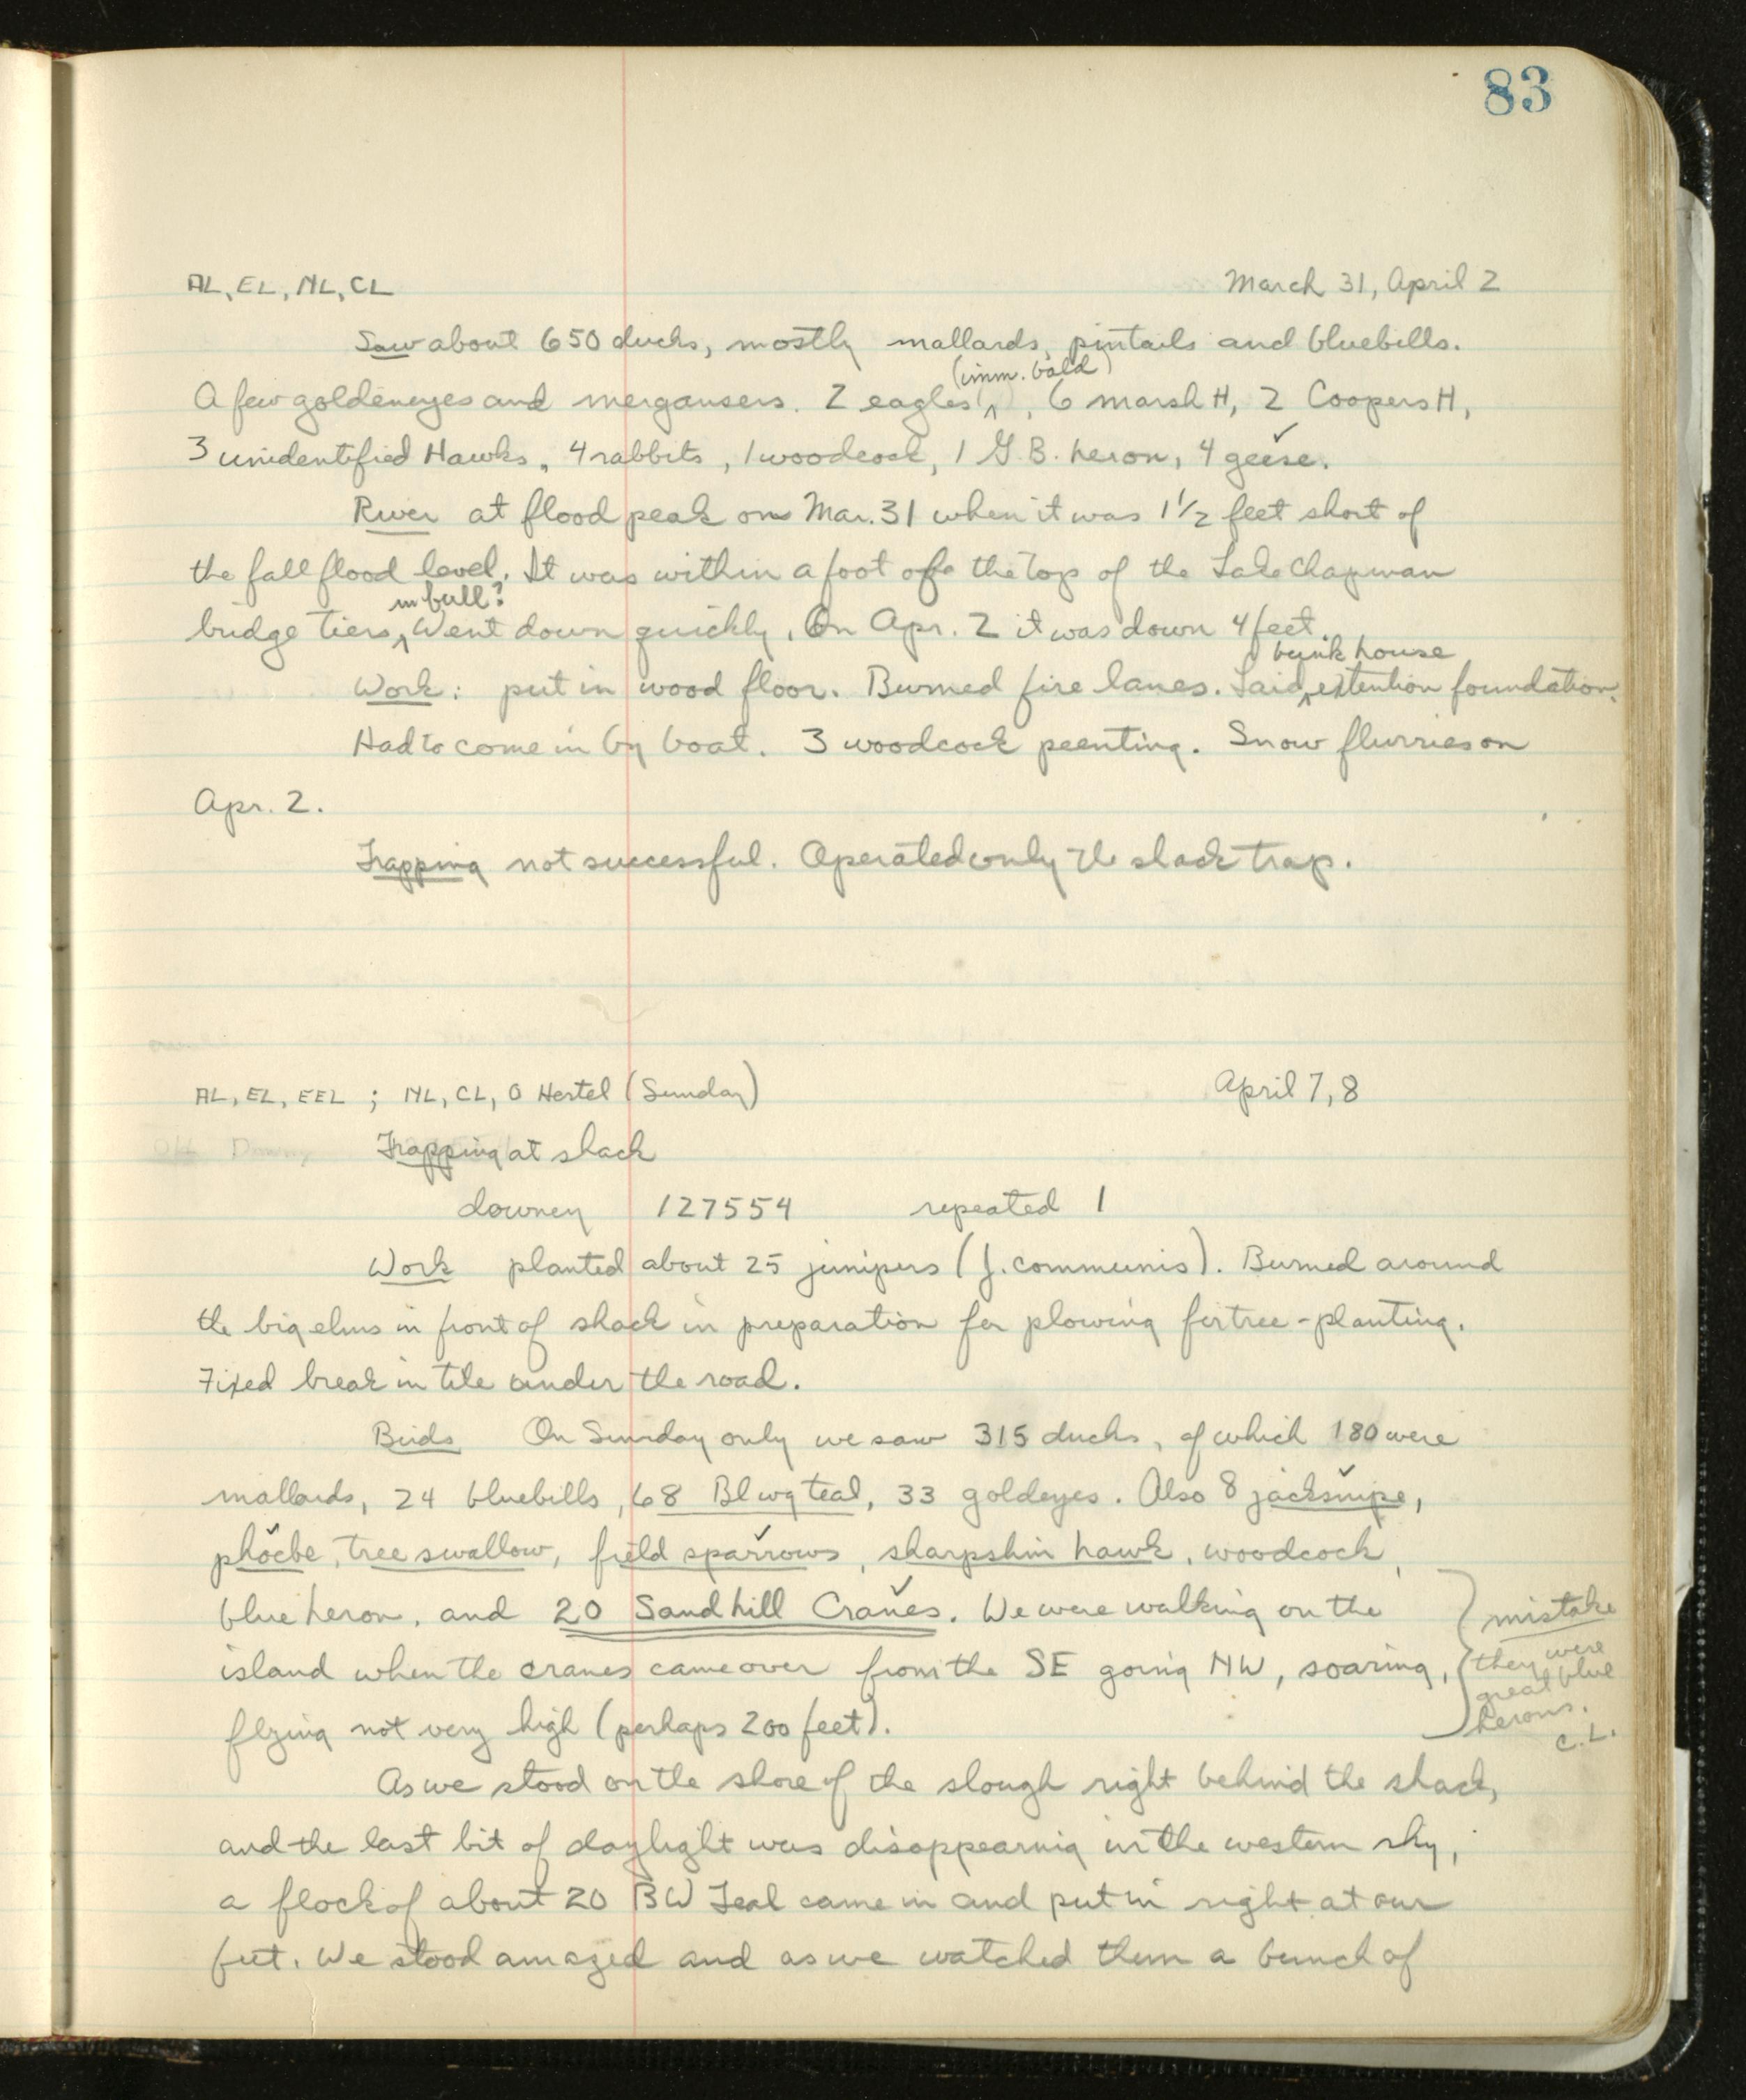 83
AL, EL, NL, CL March 31, April 2
Saw about 650 ducks, mostly mallards, pintails and bluebills.
(imm. bald)
A few goldeneyes and mergansers. 2 eagles, 6 marsh H, 2 Coopers H,
3 unidentified Hawks, 4 rabbits, 1 woodcock, 1 G.B. heron, 4 geese.
River at flood peak on Mar. 31 when it was 1 1/2 feet short of
the fall flood level. It was within a foot of the top of the Lake Chapman
bridge tiers, Went down quickly. On Apr. 2 it was down 4 feet.
bunk house
Work: put in wood floor. Burned fire lanes. Laid extention foundation.
Had to come in by boat. 3 woodcock peenting. Snow flurries on
Apr. 2.
Trapping not successful. Operated only the shack trap.
AL, EL, EEL; NL, CL, O Hertel (Sunday) April 7, 8
Trapping at shack
downey 127554 repeated 1
Work planted about 25 junipers (J. communis). Burned around
the big elms in front of shack in preparation for plowing for tree-planting.
Fixed break in tile under the road.
Birds On Sunday only we saw 315 ducks, of which 180 were
mallards, 24 bluebills, 68 Bl wg teal, 33 goldeyes. Also 8 jacksnipe,
phoebe, tree swallow, field sparrows, sharpshin hawk, woodcock,
blue heron, and 20 Sandhill Cranes. We were walking on the
island when the cranes came over from the SE going NW, soaring,
flying not very high (perhaps 200 feet).
mistake
they were
great blue
herons.
C.L.
As we stood on the shore of the slough right behind the shack,
and the last bit of daylight was disappearing in the western sky,
a flock of about 20 BW Teal came in and put in right at our
feet. We stood amazed and as we watched them a bunch of